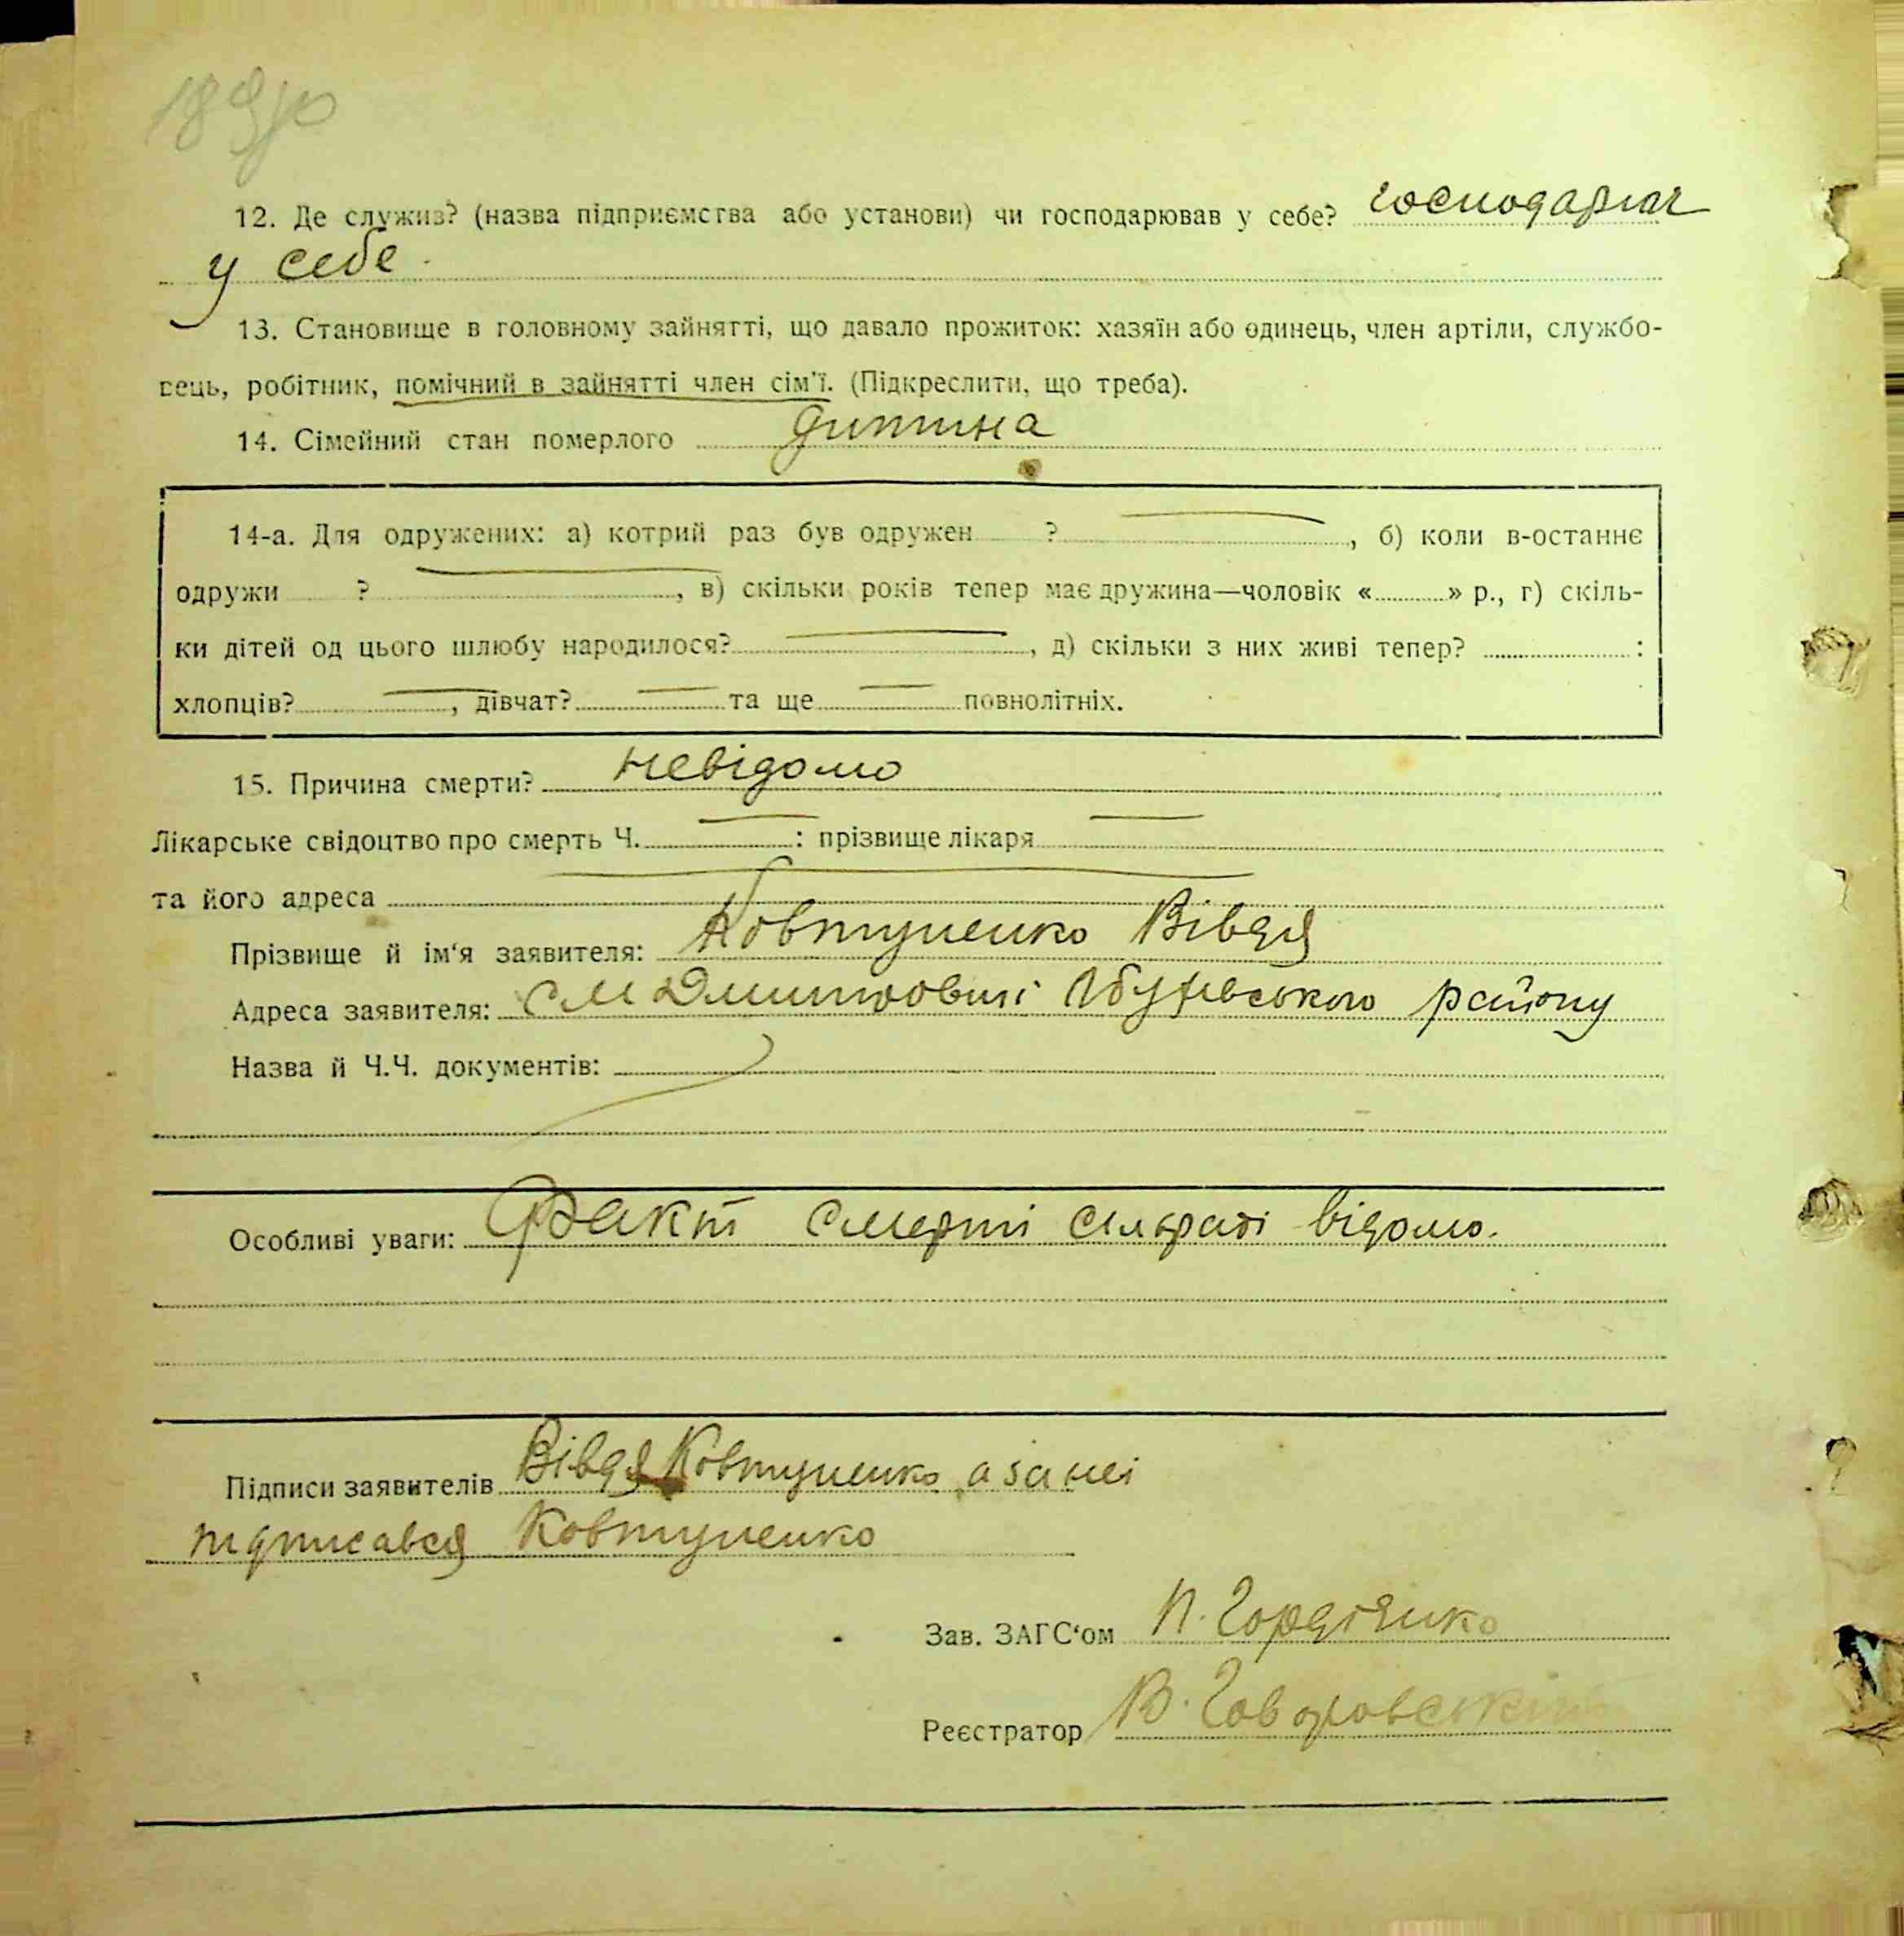 12. Де служив? (назва підприємства або установи) чи господарював у себе? господарює
у себе.
13. Становище в головному зайнятті, що давало прожиток: хазяїн або одинець, член артіли, службо-
вець, робітник, помічний в зайнятті член сім'ї. (Підкреслити, що треба).
14. Сімейний стан померлого дитина
14-а. Для одружених: а) котрий раз був одружен ? —, б) коли в-останнє
одружи ? —, в) скільки років тепер має дружина—чоловік « » р., г) скіль-
ки дітей од цього шлюбу народилося? —, д) скільки з них живі тепер? :
хлопців? —, дівчат? — та ще — повнолітніх.
15. Причина смерти? невідомо
Лікарське свідоцтво про смерть Ч. — : прізвище лікаря —
та його адреса —
Прізвище й ім'я заявителя: Ковтуненко Вівдя
Адреса заявителя: см Дмитровичі Обухівського району
Назва й Ч.Ч. документів:
Особливі уваги: Факт смерті сільраді відомо.
Підписи заявителів Вівдя Ковтуненко, а за неї
підписався Ковтуненко
Зав. ЗАГС'ом П. Гордієнко
Реєстратор В. Говоровський